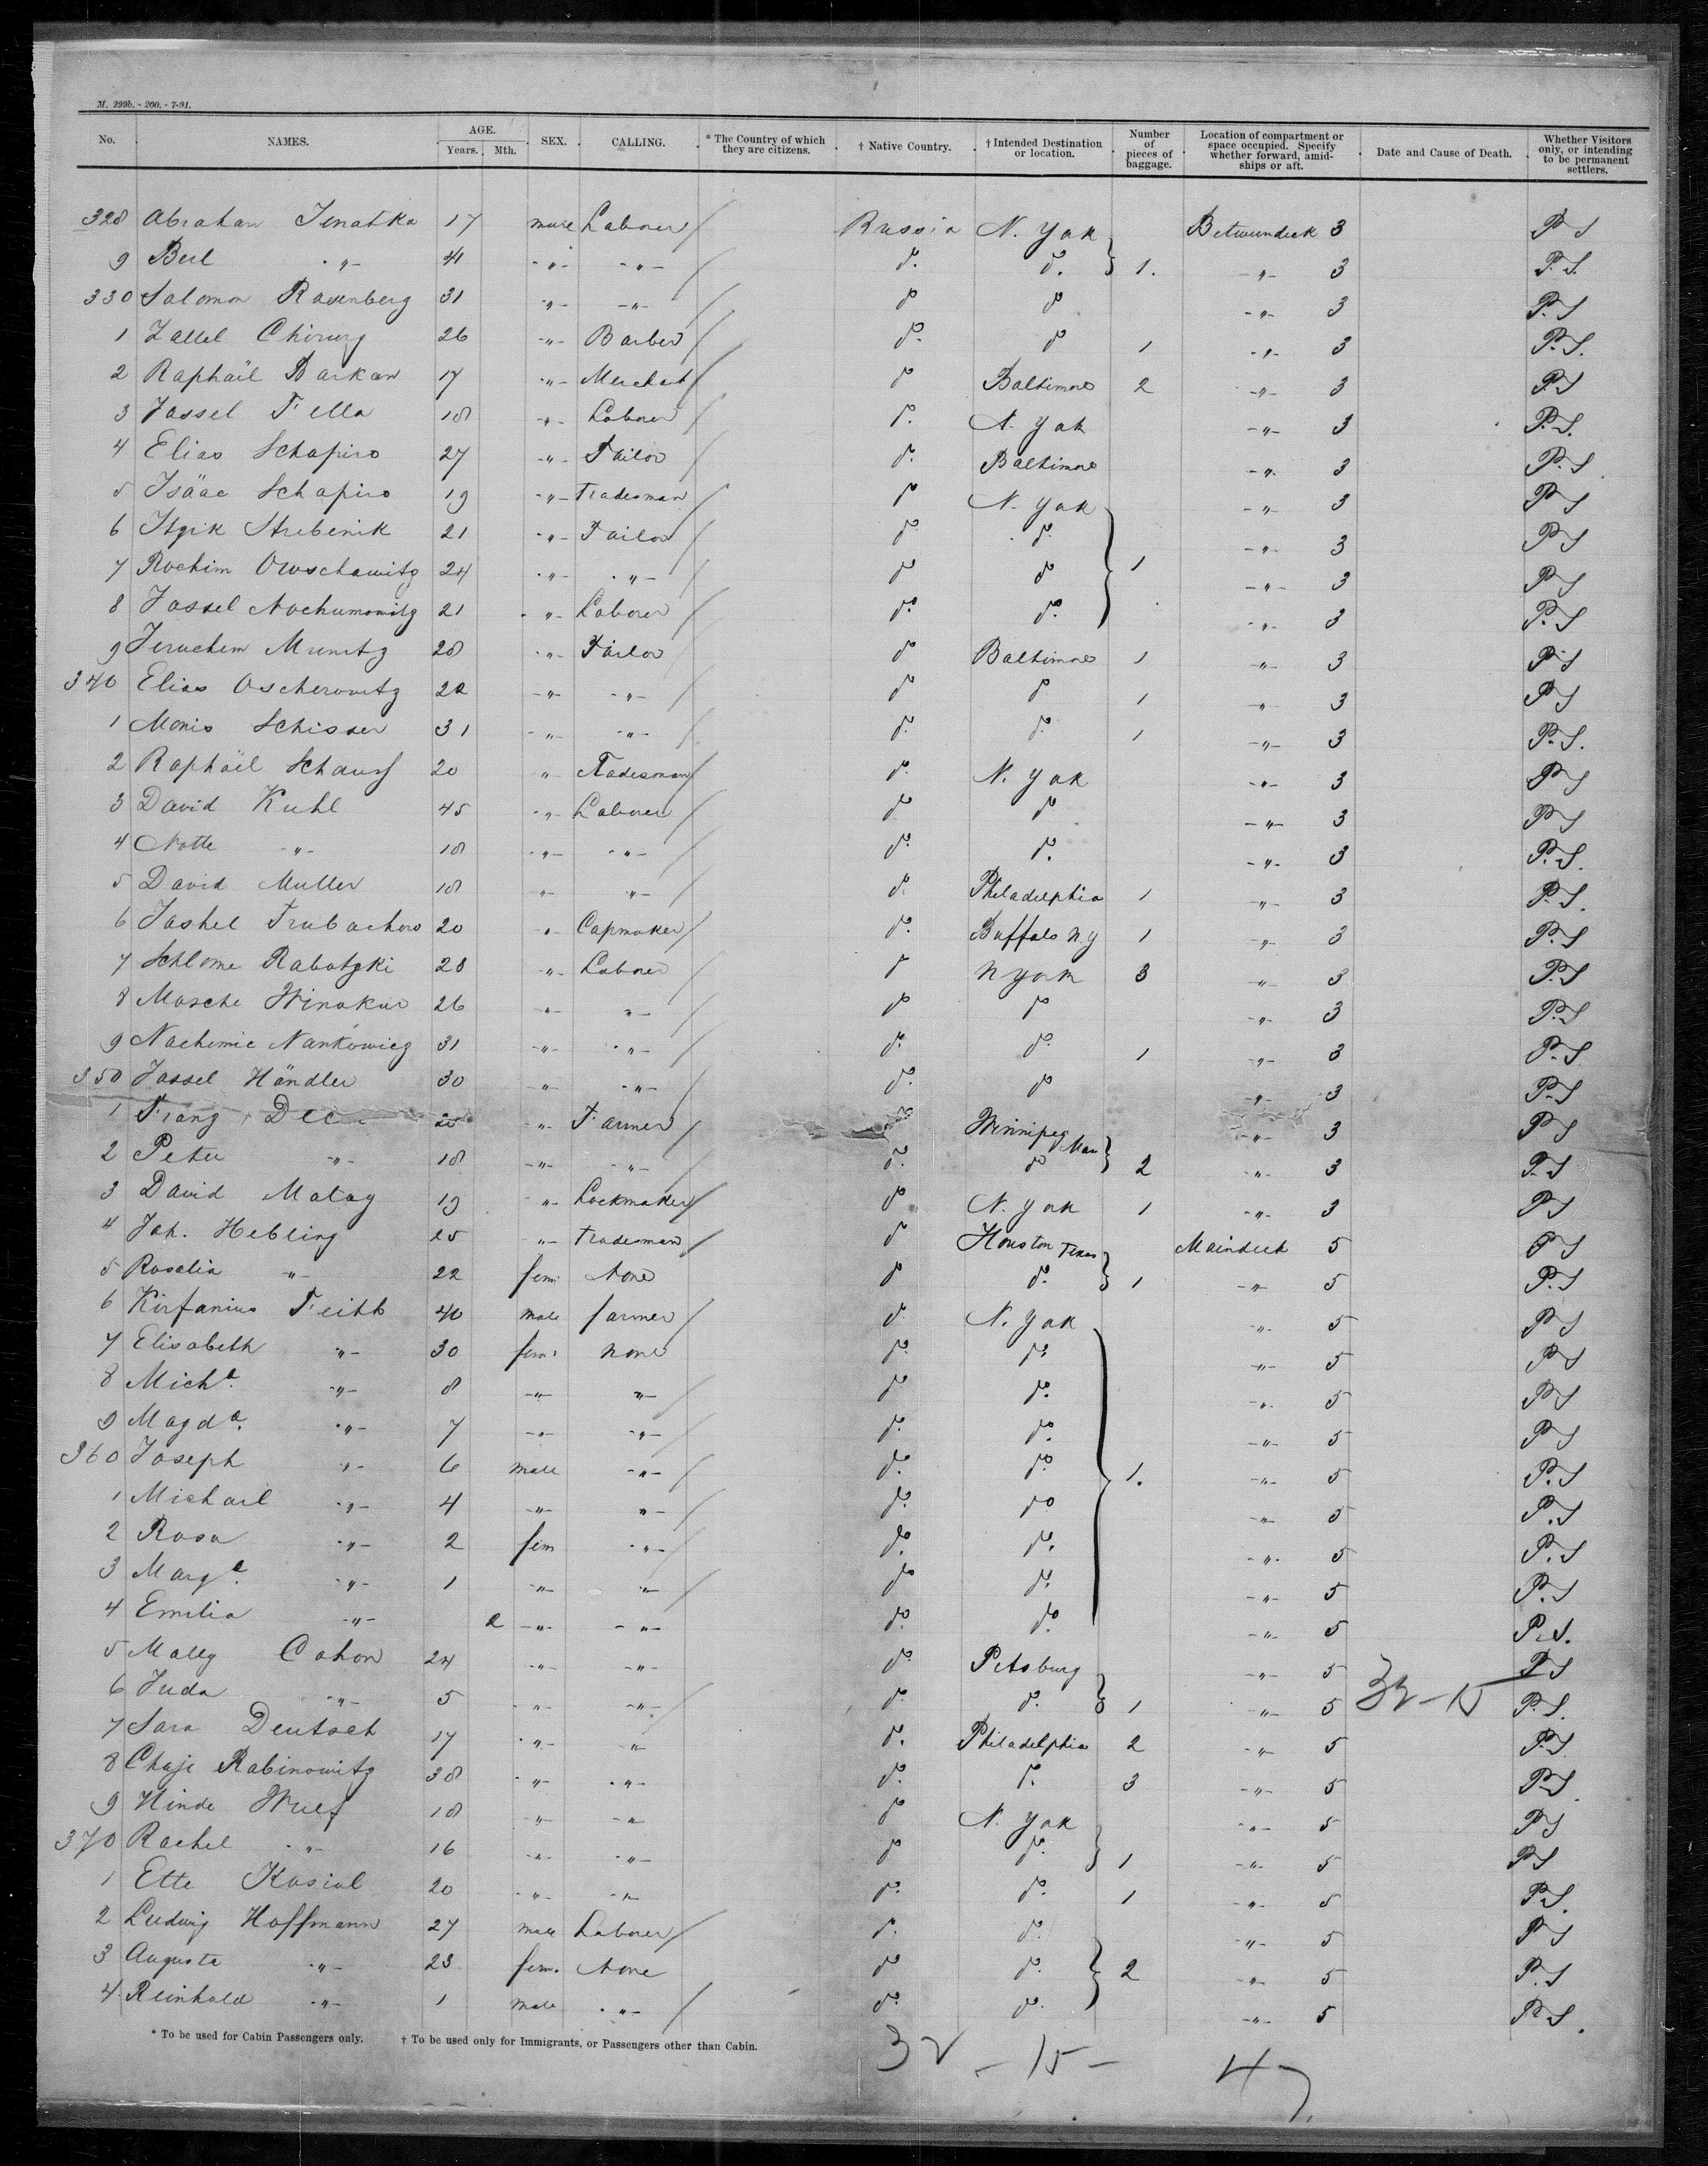 M. 299b. - 200. - 7-91.
No. NAMES. AGE. Years. Mth. SEX. CALLING. * The Country of which they are citizens. † Native Country. † Intended Destination or location. Number of pieces of baggage. Location of compartment or space occupied. Specify whether forward, amidships or aft. Date and Cause of Death. Whether Visitors only, or intending to be permanent settlers.
328 Abraham 17 male Laborer Russia N. York Betweendeck 3 P S
9 Berl -"- 41 -"- -"- do. do. 1. -"- 3 P. S.
330 Salomon Rosenberg 31 -"- -"- do do -"- 3 P. S
1 Chirurg 26 -"- Barber do. do 1 -"- 3 P. S.
2 Raphaïl Barkan 17 -"- Merchant do Baltimore 2 -"- 3 P. S
3 Jossel Fella 18 -"- Laborer do. N. York -"- 3 P. S.
4 Elias Schapiro 27 -"- Tailor do. Baltimore -"- 3 P. S
5 Isäac Schapiro 19 -"- Tradesman do N. York -"- 3 P S
6 Itzik Strebenik 21 -"- Tailor do. do. -"- 3 P S
7 24 -"- -"- do do 1 -"- 3 P S
8 Jossel Nochumowitz 21 -"- Laborer do. do. -"- 3 P. S
9 Jeruchem 28 -"- Tailor do Baltimore 1 -"- 3 P S
340 Elias Oscherowitz 22 -"- -"- do do 1 -"- 3 P S
1 Schisser 31 -"- -"- do. do. 1 -"- 3 P. S.
2 Raphäil 20 " Tradesman do. N. York -"- 3 P S
3 David Kuhl 45 -"- Laborer do do -"- 3 P S
4 Notte -"- 18 -"- -"- do. do. -"- 3 P. S.
5 David Muller 18 -"- -"- do. Philadelphia 1 -"- 3 P. S.
6 20 " Capmaker do. Buffalo N.Y 1 -"- 3 P. S
7 Schlome Rabotzki 28 -"- Laborer do N York 3 -"- 3 P. S
8 Mosche Winokur 26 -"- "- do do -"- 3 P. S
9 Nachemie Nankowicz 31 -"- -"- do. do. 1 -"- 3 P. S
350 Jossel Händler 30 -"- -"- do. do -"- 3 P. S
1 Franz -"- Farmer do Winnipeg Man -"- 3 P S
2 Peter -"- 18 -"- -"- do. do 2 -"- 3 P. S
3 David 19 "- Lockmaker do N. York 1 -"- 3 P S
4 Joh. Hebling 25 -"- Tradesman do Houston Texas Maindeck 5 P S
5 Rosalia -"- 22 fem. None do do. 1 -"- 5 P. S
6 Feith 40 male farmer do. N. York -"- 5 P S
7 Elisabeth -"- 30 fem. none do. do. -"- 5 P S
8 Micha. -"- 8 -"- "- do do. -"- 5 P S
9 Magda. -"- 7 -"- -"- do. do. -"- 5 P S
360 Joseph -"- 6 male -"- do. do. 1. -"- 5 P. S
1 Michael -"- 4 -"- "- do. do -"- 5 P. S
2 Rosa -"- 2 fem -"- do. do. -"- 5 P. S
3 -"- 1 -"- -"- do do. -"- 5 P. S
4 Emilia -"- 2 -"- -"- do. do. -"- 5 P. S.
5 Cohon 24 -"- -"- do. -"- 5 P S
6 Juda -"- 5 -"- -"- do. do. 1 -"- 5 32 - 15 P. S.
7 Sara Deutsch 17 -"- -"- do. Philadelphia 2 -"- 5 P. S
8 Chaje Rabinowitz 38 -"- -"- do. do. 3 -"- 5 P. S.
9 Hinde Wulf 18 -"- -"- do N. York -"- 5 P S
370 Rachel -"- 16 -"- -"- do do. 1 -"- 5 P S
1 Ette 20 -"- -"- do. do. 1 -"- 5 P. S.
2 Ludwig Hoffmann 27 male Laborer do. do. -"- 5 P S
3 Augusta -"- 23 fem. None do do. 2 -"- 5 P. S
4 Reinhold -"- 1 male -"- do. do. -"- 5 P. S.
* To be used for Cabin Passengers only. † To be used only for Immigrants, or Passengers other than Cabin.
32 - 15 - 47